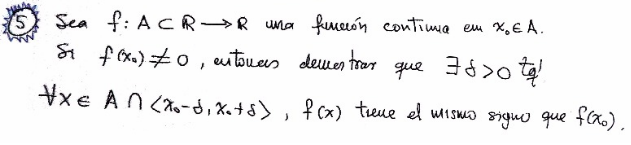 5 Sea f: A ⊂ R → R una función continua en x₀ ∈ A.
Si f(x₀) ≠ 0, entonces demostrar que ∃ δ > 0 tq'
∀x ∈ A ∩ <x₀-δ, x₀+δ>, f(x) tiene el mismo signo que f(x₀).